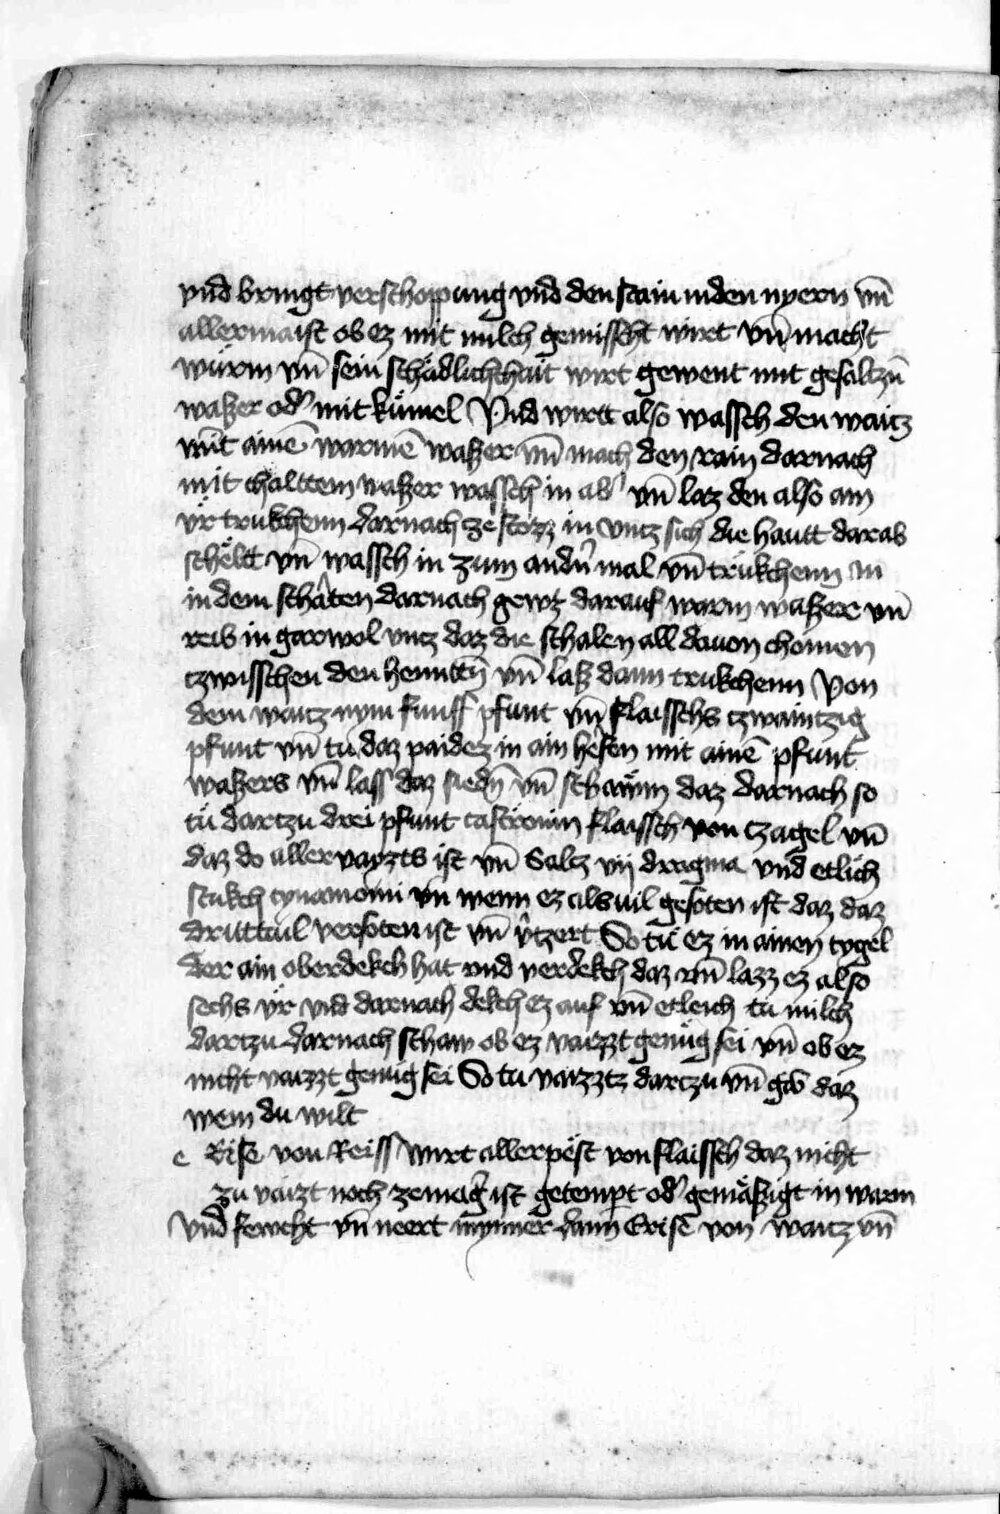 vnd bringt verschoppung vnd den stain in den nyern vn̄
allermaist ob ez mit milch gemisscht wirt vn̄ macht
wurm vn̄ sein schädlichchait wirt gewent mit gesaltzn̄
waßer od' mit kümel Vnd wirtt also wassch den waitz
mit ainē warmē waßer vn̄ mach den rain darnach
mit chalttem waßer wassch in ab vn̄ laz den also ain
vr trukchenn darnach ze stozz in vncz sich die hautt darab
schelt vn̄ wassch in zum andn̄ mal vn̄ trükchenn in
in dem schâten darnach gewz darauf warm waßere vn̄
reib in gar wol vncz daz die schalen all dauon chömen
tzwisschen den henntn̄ vn̄ laß dann trukchenn Von
dem waitz nym funff pfunt vn̄ flaisschs tzwaintzig
pfunt vn̄ tu daz paidez in ain hefen mit ainē pfunt
waßers vn̄ lass daz siedn̄ vn̄ schawm daz darnach so
tü dartzu drei pfunt castronin flaissch von tzagel vn̄
daz do aller vayzts ist vn̄ Saltz vij dragma vnd etlich
stukch cynamomi vn̄ wenn ez als uil gesoten ist daz daz
drittail versoten ist vn̄ v̂tzert So tü ez in ainen tygel
der ain oberdekch hat vnd verdekch daz vn̄ lazz ez also
sechs vr vnd darnach dekch ez auf vn̄ etleich tu milch
dartzu darnach schaw ob ez vaizzt genüg sei vn̄ ob ez
nicht vaizzt genug sei So tu vaizztz dartzu vn̄ gib daz
wem du wilt
e Rise von Reiss wirt aller pest von flaissch daz nicht
zu vaizt noch ze mag̉ ist getempt od' gemäßigt in warm
vnd fewcht vn̄ neert mynner dann Erise von waitz vn̄